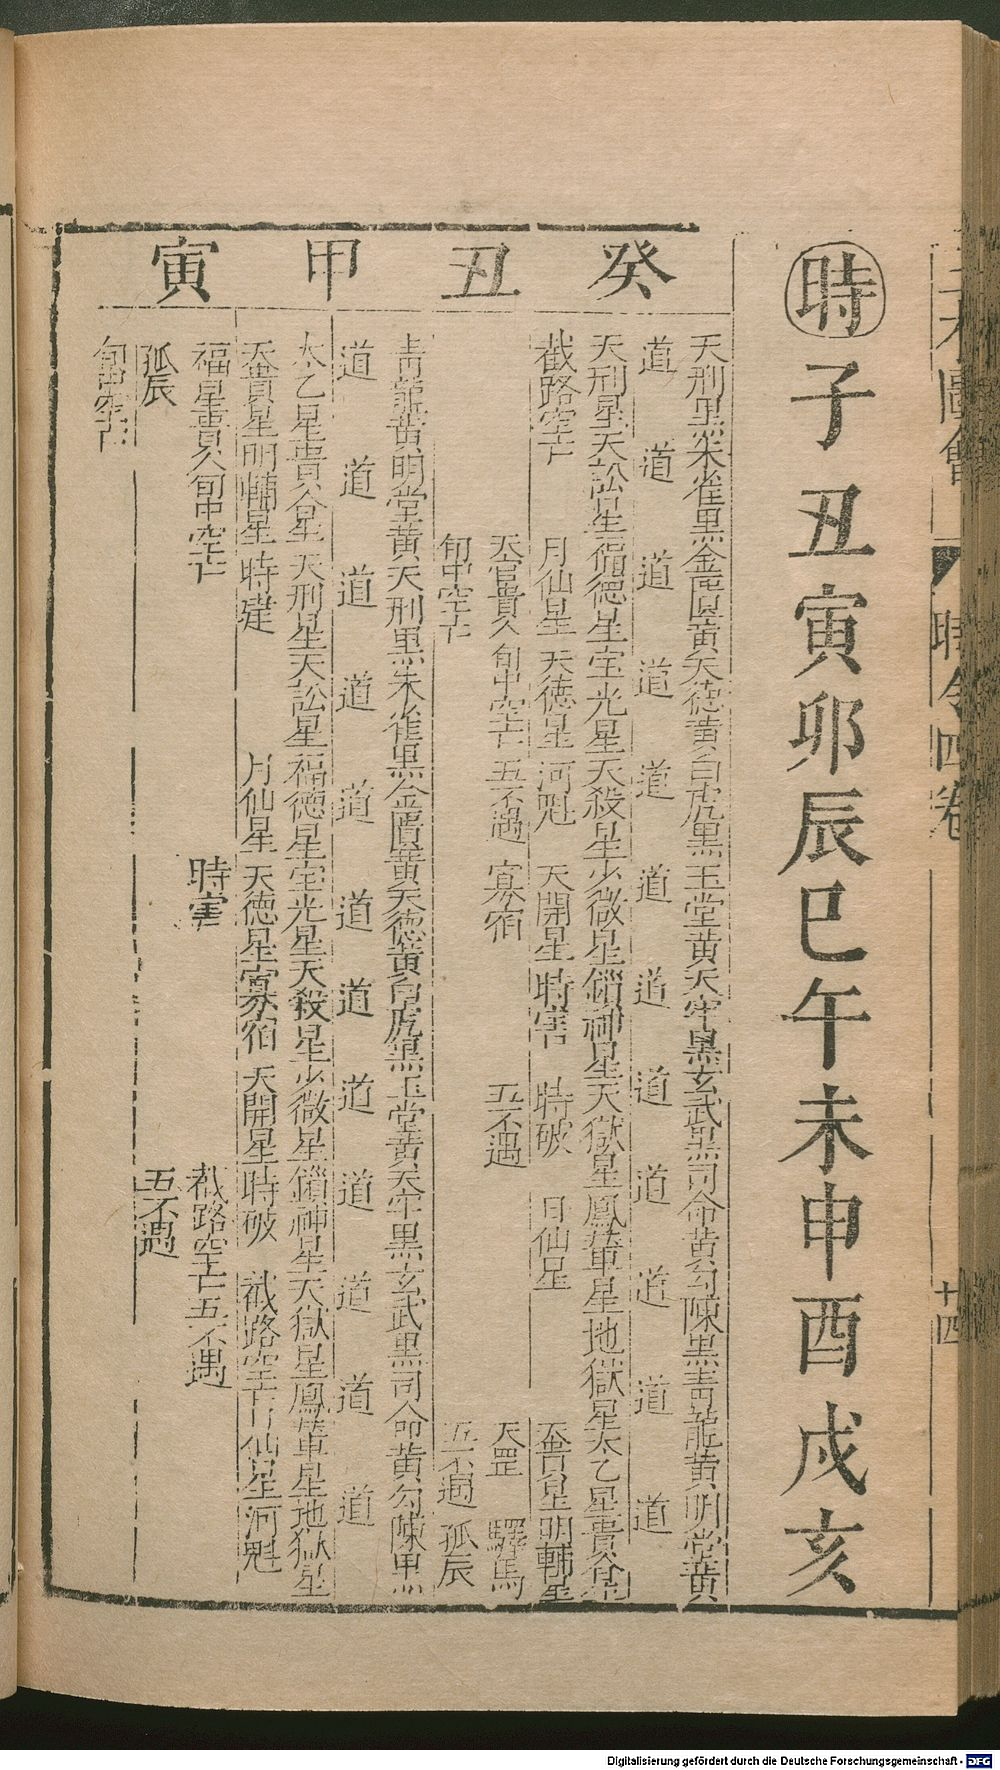 三才圖會
時令四卷
十四
時子丑寅卯辰巳午未申酉戌亥
癸丑
天刑黒朱雀黒金匱黄天德黄白虎黒玉堂黄天牢黒玄武黒司命黄勾陳黒青龍黄明堂黄
道 道 道 道 道 道 道 道 道 道 道 道
天刑星天訟星福德星宝光星天殺星少微星鎖神星天獄星鳳輦星地獄星太乙星貴人星
截路空亡 月仙星 天德星 河魁 天開星 時害 時破 日仙星 天貴星明輔星
天官貴人 旬中空亡 五不遇 寡宿 五不遇 天罡 驛馬
旬中空亡 五不遇 孤辰
甲寅
青龍黄明堂黄天刑黒朱雀黒金匱黄天德黄白虎黒玉堂黄天牢黒玄武黒司命黄勾陳黒
道 道 道 道 道 道 道 道 道 道 道 道
太乙星貴人星天刑星天訟星福德星宝光星天殺星少微星鎖神星天獄星鳳輦星地獄星
天貴星明輔星 時建 月仙星 天德星寡宿 天開星時破 截路空亡日仙星河魁
福星貴人旬中空亡 時害 截路空亡五不遇
孤辰 五不遇
旬中空亡
Digitalisierung gefördert durch die Deutsche Forschungsgemeinschaft - DFG